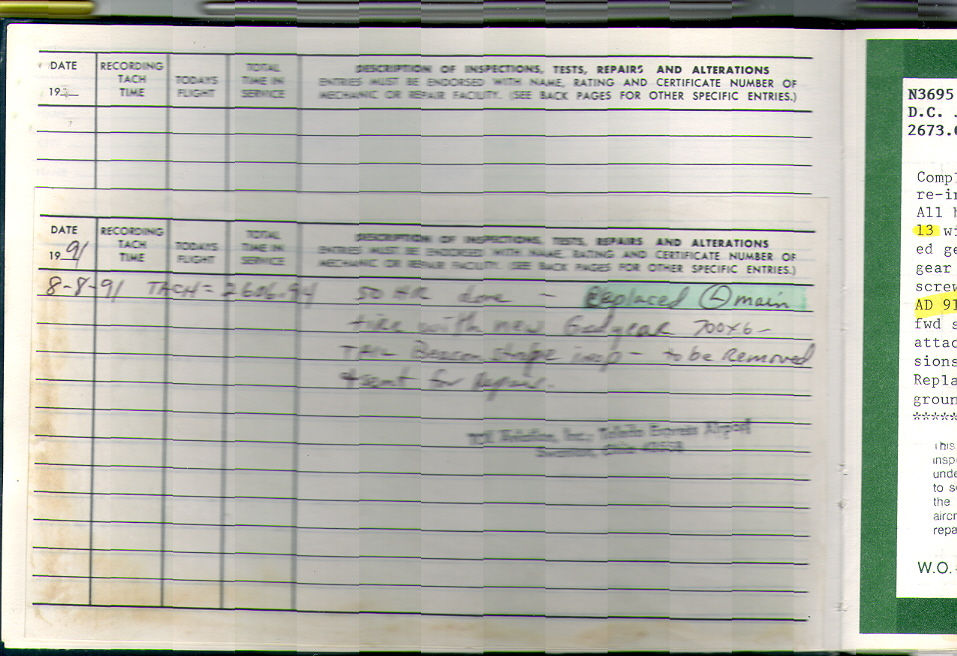 DATE RECORDING TACH TIME TODAYS FLIGHT TOTAL TIME IN SERVICE DESCRIPTION OF INSPECTIONS, TESTS, REPAIRS AND ALTERATIONS
ENTRIES MUST BE ENDORSED WITH NAME, RATING AND CERTIFICATE NUMBER OF
19 MECHANIC OR REPAIR FACILITY. (SEE BACK PAGES FOR OTHER SPECIFIC ENTRIES.)
DATE RECORDING TACH TIME TODAYS FLIGHT TOTAL TIME IN SERVICE DESCRIPTION OF INSPECTIONS, TESTS, REPAIRS AND ALTERATIONS
ENTRIES MUST BE ENDORSED WITH NAME, RATING AND CERTIFICATE NUMBER OF
1991 MECHANIC OR REPAIR FACILITY. (SEE BACK PAGES FOR OTHER SPECIFIC ENTRIES.)
8-8-91 TACH = 2606.94 50 HR done - Replaced L main
tire with new Goodyear 700x6-
TAIL Beacon strobe inop - to be Removed
& sent for Repair.
Aviation, Inc., Toledo Express Airport
Swanton, Ohio
N3695
D.C.
2673.
Compl
re-in
All h
13 wi
ed ge
gear
screw
AD 91
fwd s
attac
sions
Repla
groun
*****
This
insp
unde
to s
the
aircr
repa
W.O.